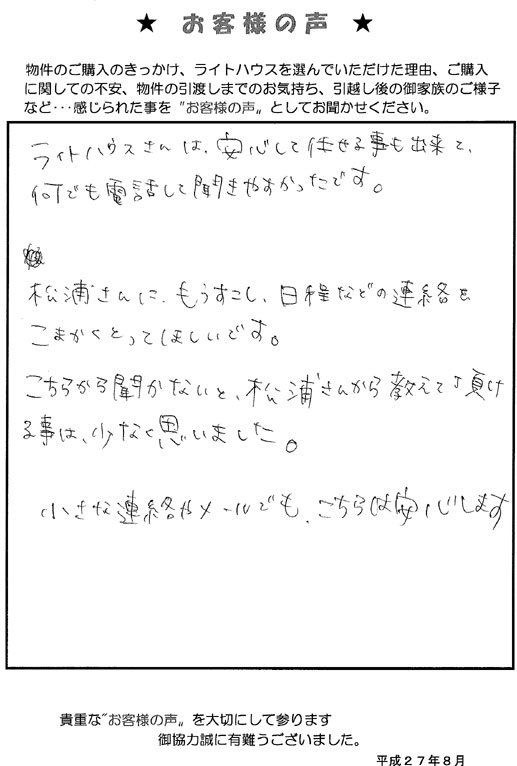 ★ お客様の声 ★
物件のご購入のきっかけ、ライトハウスを選んでいただけた理由、ご購入
に関しての不安、物件の引渡しまでのお気持ち、引越し後の御家族のご様子
など･･･感じられた事を〝お客様の声〟としてお聞かせください。
ライトハウスさんは、安心して任せる事も出来て、
何でも電話して聞きやすかったです。
松浦さんに、もうすこし、日程などの連絡を
こまかくとってほしいです。
こちらから聞かないと、松浦さんから教えて頂け
る事は、少なく思いました。
小さな連絡やメールでも、こちらは安心します
貴重な〝お客様の声〟を大切にして参ります
御協力誠に有難うございました。
平成２７年８月